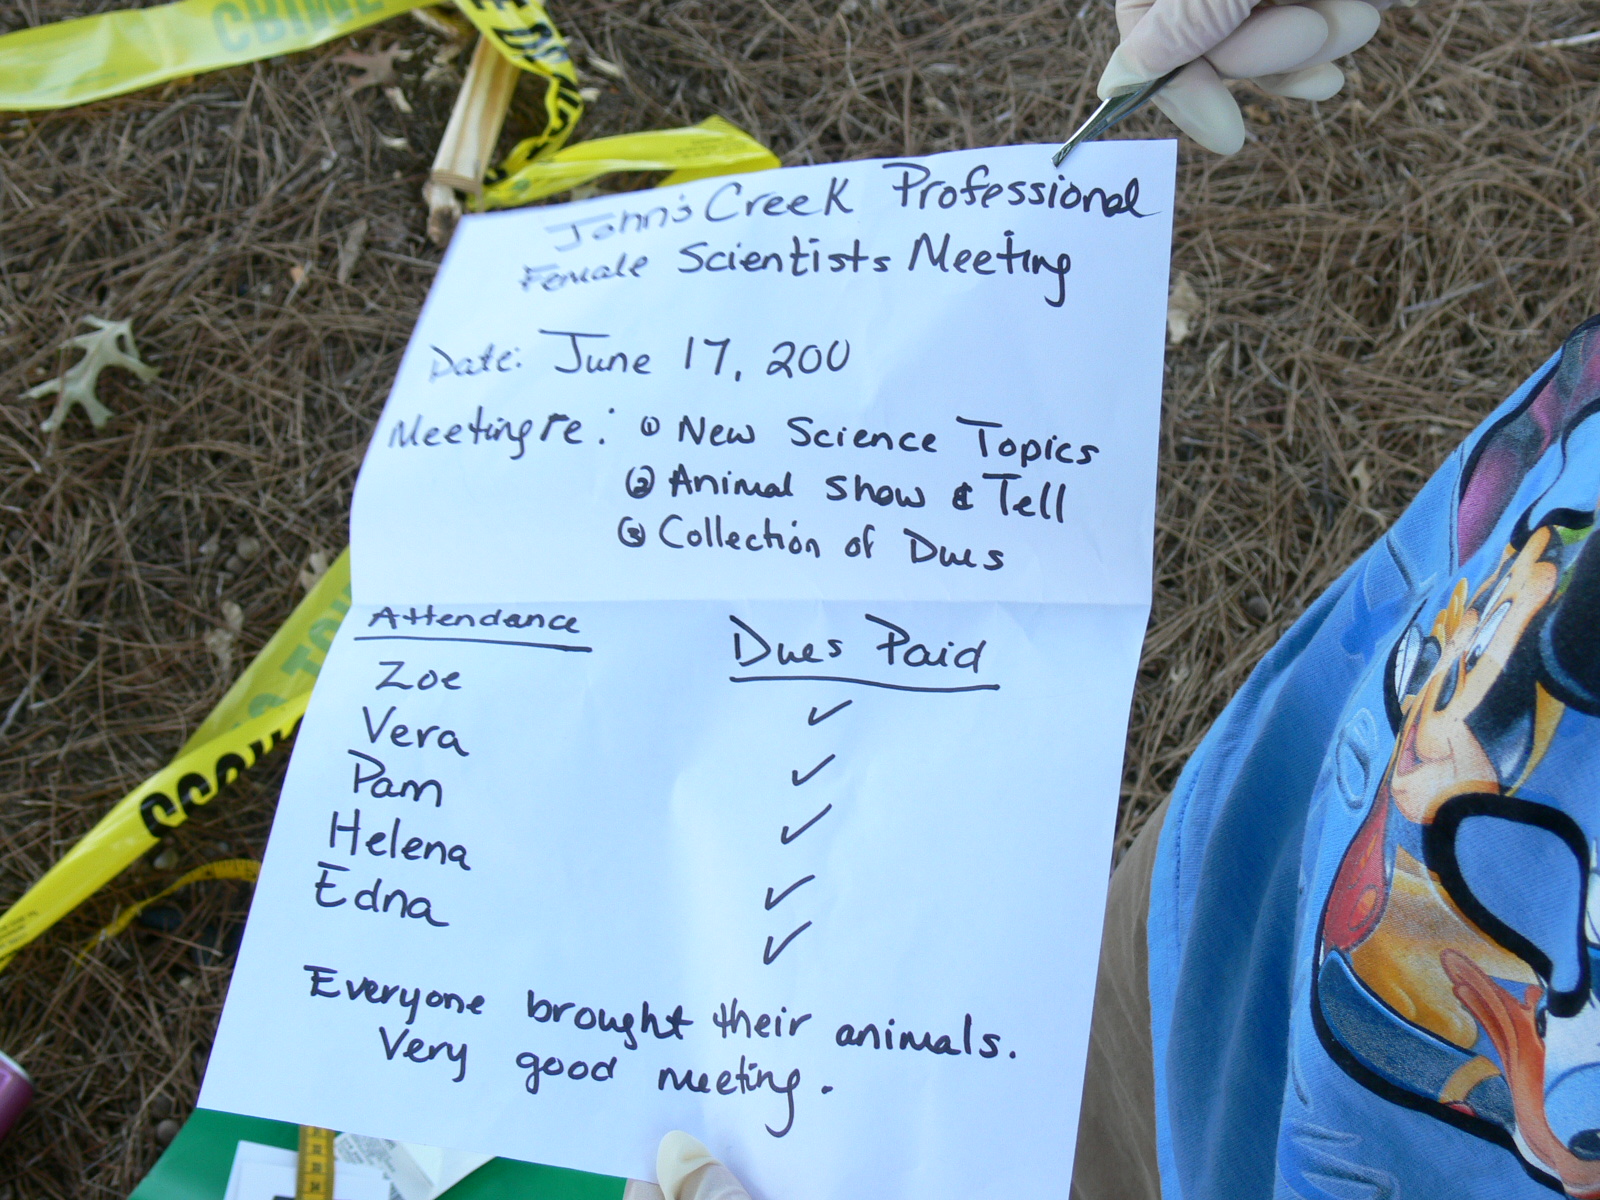 CRIME
John's Creek Professional
Female Scientists Meeting
Date: June 17, 200
Meeting re: ① New Science Topics
② Animal Show & Tell
③ Collection of Dues
Attendance Dues Paid
Zoe ✓
Vera ✓
Pam ✓
Helena ✓
Edna ✓
Everyone brought their animals.
Very good meeting.